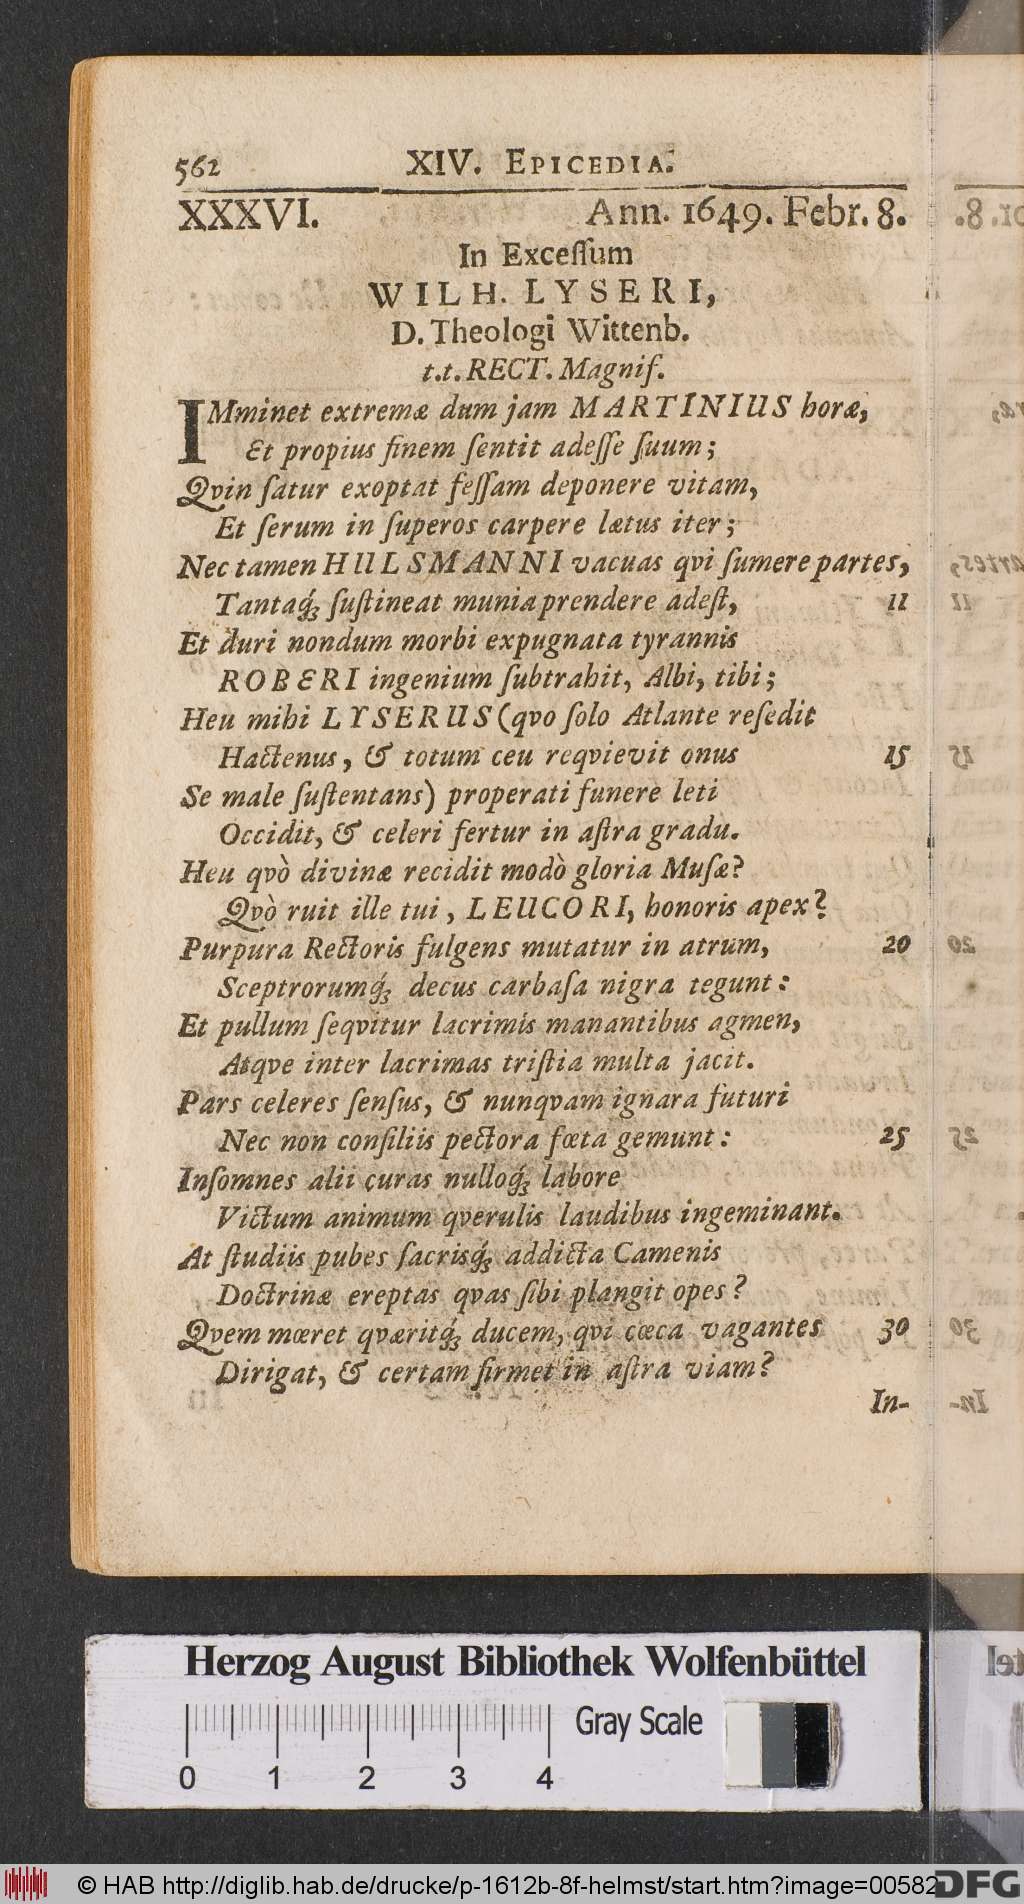 562 XIV. EPICEDIA.
XXXVI. Ann. 1649. Febr. 8.
In Exceſſum
WILH. LYSERI,
D. Theologi Wittenb.
t.t. RECT. Magnif.
IMminet extremæ dum jam MARTINIUS horæ,
Et propius finem ſentit adeſſe ſuum;
Qvin ſatur exoptat feſſam deponere vitam,
Et ſerum in ſuperos carpere lætus iter;
Nec tamen HULSMANNI vacuas qvi ſumere partes,
Tantaq́ꝫ ſuſtineat munia prendere adeſt, 11
Et duri nondum morbi expugnata tyrannis
ROBERI ingenium ſubtrahit, Albi, tibi;
Heu mihi LYSERUS (qvo ſolo Atlante reſedit
Hactenus, & totum ceu reqvievit onus 15
Se male ſuſtentans) properati funere leti
Occidit, & celeri fertur in aſtra gradu.
Heu qvò divinæ recidit modò gloria Muſæ?
Qvò ruit ille tui, LEUCORI, honoris apex?
Purpura Rectoris fulgens mutatur in atrum, 20
Sceptrorumq́ꝫ decus carbaſa nigra tegunt:
Et pullum ſeqvitur lacrimis manantibus agmen,
Atqve inter lacrimas triſtia multa jacit.
Pars celeres ſenſus, & nunqvam ignara futuri
Nec non conſiliis pectora fœta gemunt: 25
Inſomnes alii curas nulloq́ꝫ labore
Victum animum qverulis laudibus ingeminant.
At ſtudiis pubes ſacrisq́ꝫ addicta Camenis
Doctrinæ ereptas qvas ſibi plangit opes?
Qvem mœret qværitq́ꝫ ducem, qvi cœca vagantes 30
Dirigat, & certam firmet in aſtra viam?
In-
Herzog August Bibliothek Wolfenbüttel
Gray Scale
0 1 2 3 4
© HAB http://diglib.hab.de/drucke/p-1612b-8f-helmst/start.htm?image=00582
DFG